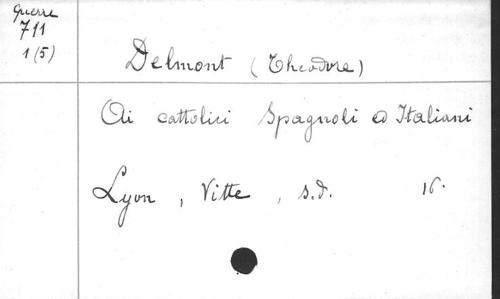 Guerre
711
1(5)
Delmont (Theodore)
Ai cattolici Spagnoli ed Italiani
Lyon, Vitte, s.d. 16.